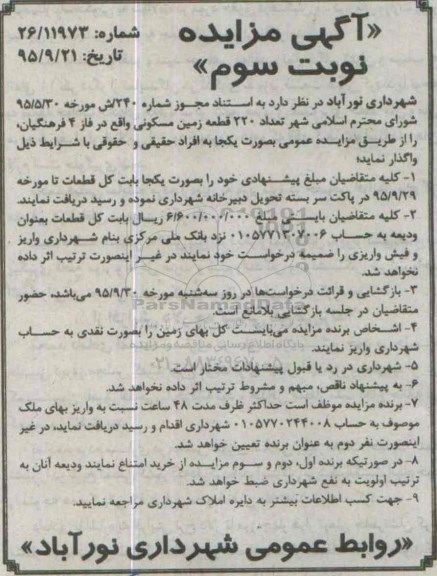 «آگهی مزایده
نوبت سوم»
شماره: ۲۶/۱۱۹۷۳
تاریخ: ۹۵/۹/۲۱
شهرداری نورآباد در نظر دارد به استناد مجوز شماره ۲۴۰/ش مورخه ۹۵/۵/۳۰
شورای محترم اسلامی شهر تعداد ۲۲۰ قطعه زمین مسکونی واقع در فاز ۴ فرهنگیان،
را از طریق مزایده عمومی بصورت یکجا به افراد حقیقی و حقوقی با شرایط ذیل
واگذار نماید؛
۱- کلیه متقاضیان مبلغ پیشنهادی خود را بصورت یکجا بابت کل قطعات تا مورخه
۹۵/۹/۲۹ در پاکت سر بسته تحویل دبیرخانه شهرداری نموده و رسید دریافت نمایند.
۲- کلیه متقاضیان بایستی مبلغ ۶/۶۰۰/۰۰۰/۰۰۰ ریال بابت کل قطعات بعنوان
ودیعه به حساب ۰۱۰۵۷۷۱۳۰۷۰۰۶ نزد بانک ملی مرکزی بنام شهرداری واریز
و فیش واریزی را ضمیمه درخواست خود نمایند در غیر اینصورت ترتیب اثر داده
نخواهد شد.
۳- بازگشایی و قرائت درخواست‌ها در روز سه‌شنبه مورخه ۹۵/۹/۳۰ می‌باشد، حضور
متقاضیان در جلسه بازگشایی بلامانع است.
۴- اشخاص برنده مزایده می‌بایست کل بهای زمین را بصورت نقدی به حساب
شهرداری واریز نمایند.
۵- شهرداری در رد یا قبول پیشنهادات مختار است.
۶- به پیشنهاد ناقص، مبهم و مشروط ترتیب اثر داده نخواهد شد.
۷- برنده مزایده موظف است حداکثر ظرف مدت ۴۸ ساعت نسبت به واریز بهای ملک
موصوف به حساب ۰۱۰۵۷۷۰۲۴۴۰۰۸ شهرداری اقدام و رسید دریافت نماید، در غیر
اینصورت نفر دوم به عنوان برنده تعیین خواهد شد.
۸- در صورتیکه برنده اول، دوم و سوم مزایده از خرید امتناع نمایند ودیعه آنان به
ترتیب اولویت به نفع شهرداری ضبط خواهد شد.
۹- جهت کسب اطلاعات بیشتر به دایره املاک شهرداری مراجعه نمایید.
«روابط عمومی شهرداری نورآباد»